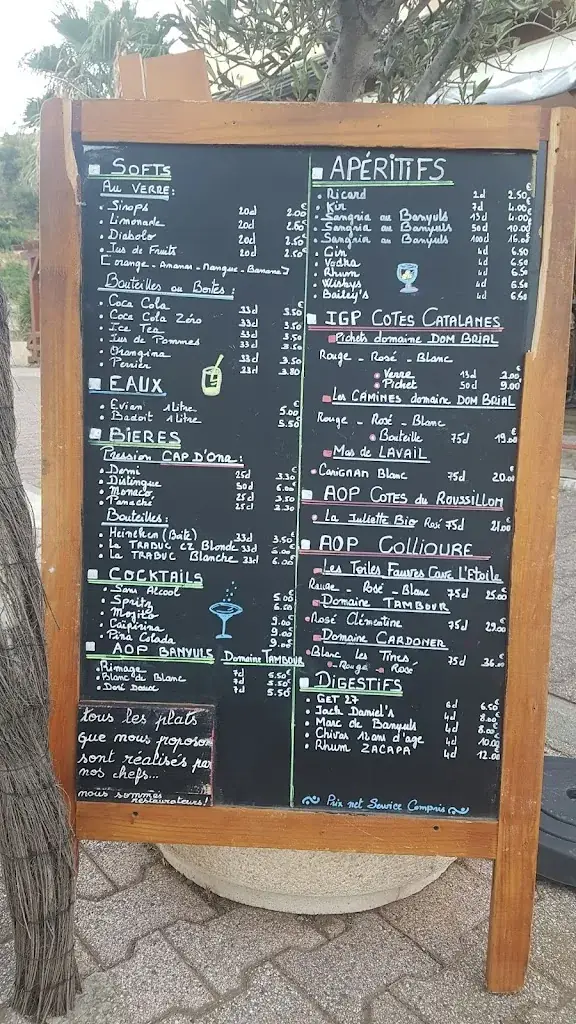 SOFTS
Au VERRE:
• Sirops 20cl 2.00€
• Limonade 20cl 2.50€
• Diabolo 20cl 2.50€
• Jus de Fruits 20cl 2.50€
[orange - Ananas - Mangue - Banane]
Bouteilles ou Boites:
• Coca Cola 33cl 3.50€
• Coca Cola Zéro 33cl 3.50
• Ice Tea 33cl 3.50
• Jus de Pommes 33cl 3.50
• Orangina 33cl 3.50
• Perrier 33cl 3.80
EAUX
• Evian 1 Litre 5.00
• Badoit 1 Litre 5.50
BIERES
Pression CAP D'Ona:
• Demi 25cl 3.30€
• Distingue 50cl 6.00
• Monaco 25cl 3.50
• Panaché 25cl 3.30
Bouteilles:
• Heineken (Boite) 33cl 3.50€
• La TRABUC CZ Blonde 33cl 6.00
• La TRABUC Blanche 33cl 6.00
COCKTAILS
• Sans Alcool 5.00€
• Spritz 6.00
• Mojito 9.00
• Caïpirina 9.00
• Pina Colada 9.00
AOP BANYULS Domaine TAMBOUR
• Rimage 7cl 5.50€
• Blanc de Blanc 7cl 5.50€
• Doré Doux 7cl 5.50
tous les plats
que nous proposons
sont réalisés par
nos chefs...
nous sommes
restaurateurs!
APÉRITIFS
• Ricard 2cl 2.50€
• Kir 7cl 4.00€
• Sangria au Banyuls 15cl 4.00€
• Sangria au Banyuls 50cl 10.00
• Sangria au Banyuls 100cl 16.00
• Gin 4cl 6.50
• Vodka 4cl 6.50
• Rhum 4cl 6.50
• Wiskys 4cl 6.50
• Bailey's 4cl 6.50
IGP COTES CATALANES
Pichets domaine DOM BRIAL
Rouge - Rosé - Blanc
• Verre 13cl 2.00€
• Pichet 50cl 9.00€
Les CAMINES domaine DOM BRIAL
Rouge - Rosé - Blanc
• Bouteille 75cl 19.00€
Mas de LAVAIL
• CARIGNAN Blanc 75cl 20.00€
AOP COTES du ROUSSILLON
• La Juliette Bio Rosé 75cl 21.00€
AOP COLLIOURE
Les Toiles Fauves Cave L'Etoile
Rouge - Rosé - Blanc 75cl 25.00€
Domaine TAMBOUR
• Rosé Clémentine 75cl 27.00€
Domaine CARDONER
• Blanc les Tines 75cl 26.00€
• Rouge - Rosé
DIGESTIFS
• GET 27 6cl 6.50€
• Jack Daniel's 4cl 8.00€
• Marc de Banyuls 4cl 8.00€
• Chivas 12 ans d'age 4cl 10.00€
• Rhum ZACAPA 4cl 12.00€
Prix net Service Compris